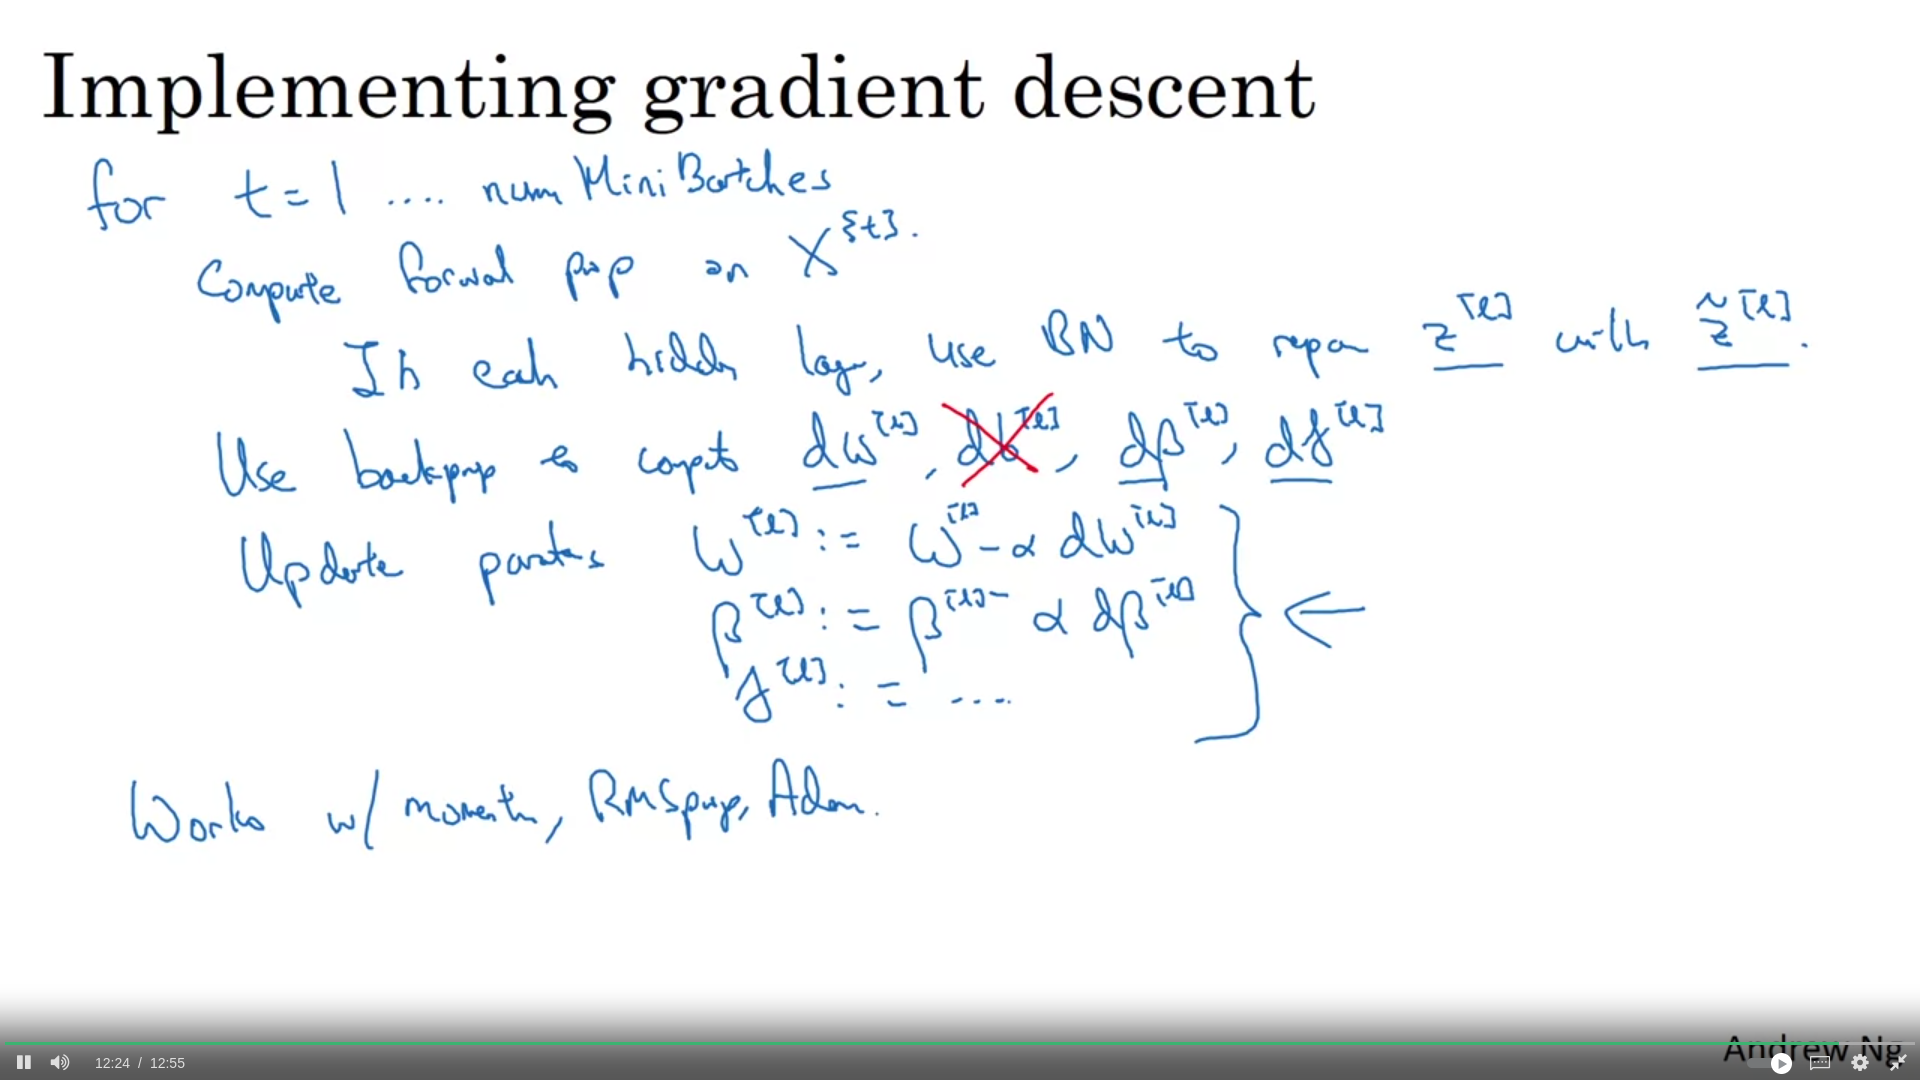 Implementing gradient descent
for t = 1 .... num Mini Batches
Compute forward prop on X^{t}.
In each hidden layer, use BN to repar z^[l] with z̃^[l].
Use backprop to compute dw^[l], db^[l], dβ^[l], dγ^[l]
Update parameters W^[l] := W^[l] - α dW^[l]
β^[l] := β^[l] - α dβ^[l]
γ^[l] := ....
Works w/ momentum, RMSprop, Adam.
Andrew Ng
12:24 / 12:55